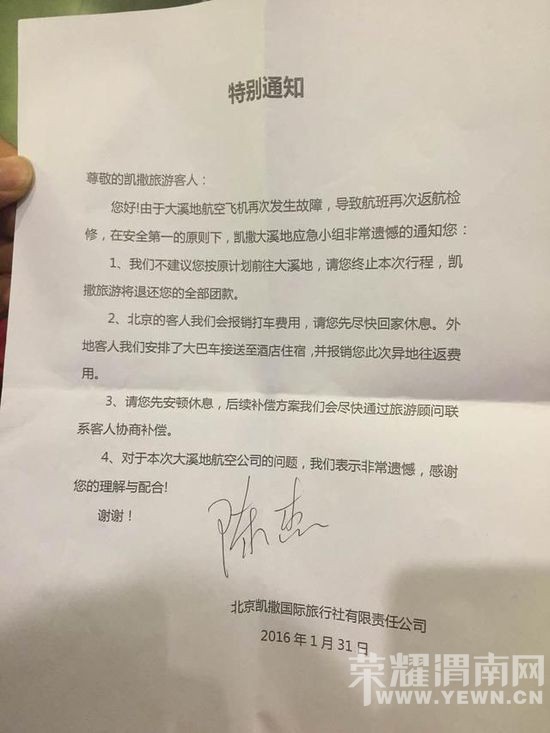 特别通知
尊敬的凯撒旅游客人：
您好!由于大溪地航空飞机再次发生故障，导致航班再次返航检
修，在安全第一的原则下，凯撒大溪地应急小组非常遗憾的通知您：
1、我们不建议您按原计划前往大溪地，请您终止本次行程，凯
撒旅游将退还您的全部团款。
2、北京的客人我们会报销打车费用，请您先尽快回家休息。外
地客人我们安排了大巴车接送至酒店住宿,并报销您此次异地往返费
用。
3、请您先安顿休息，后续补偿方案我们会尽快通过旅游顾问联
系客人协商补偿。
4、对于本次大溪地航空公司的问题，我们表示非常遗憾，感谢
您的理解与配合!
谢谢！
陈杰
北京凯撒国际旅行社有限责任公司
2016年1月31日
荣耀渭南网
WWW.YEWN.CN